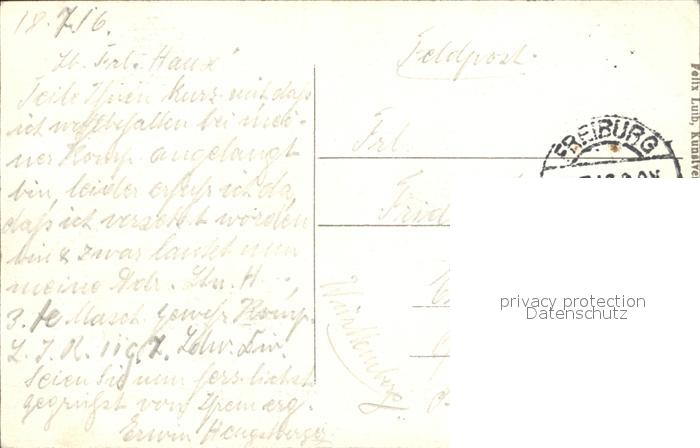 18.7.16.
Lb. Frl. Haux!
Teile Ihnen kurz mit daß
ich wohlbehalten bei mei-
ner Komp. angelangt
bin, leider erfuhr ich da,
daß ich versetzt worden
bin & zwar lautet nun
meine Adr. Ltn. H
3. Masch. Gewehr Komp.
L. J. R. 119, 7. Ldw. Div.
Seien Sie nun herzlichst
gegrüßt von Ihrem erg.
Erwin
Feldpost.
Frl.
Frid
Württemberg
FREIBURG
Felix Luib, Kunstve
privacy protection
Datenschutz